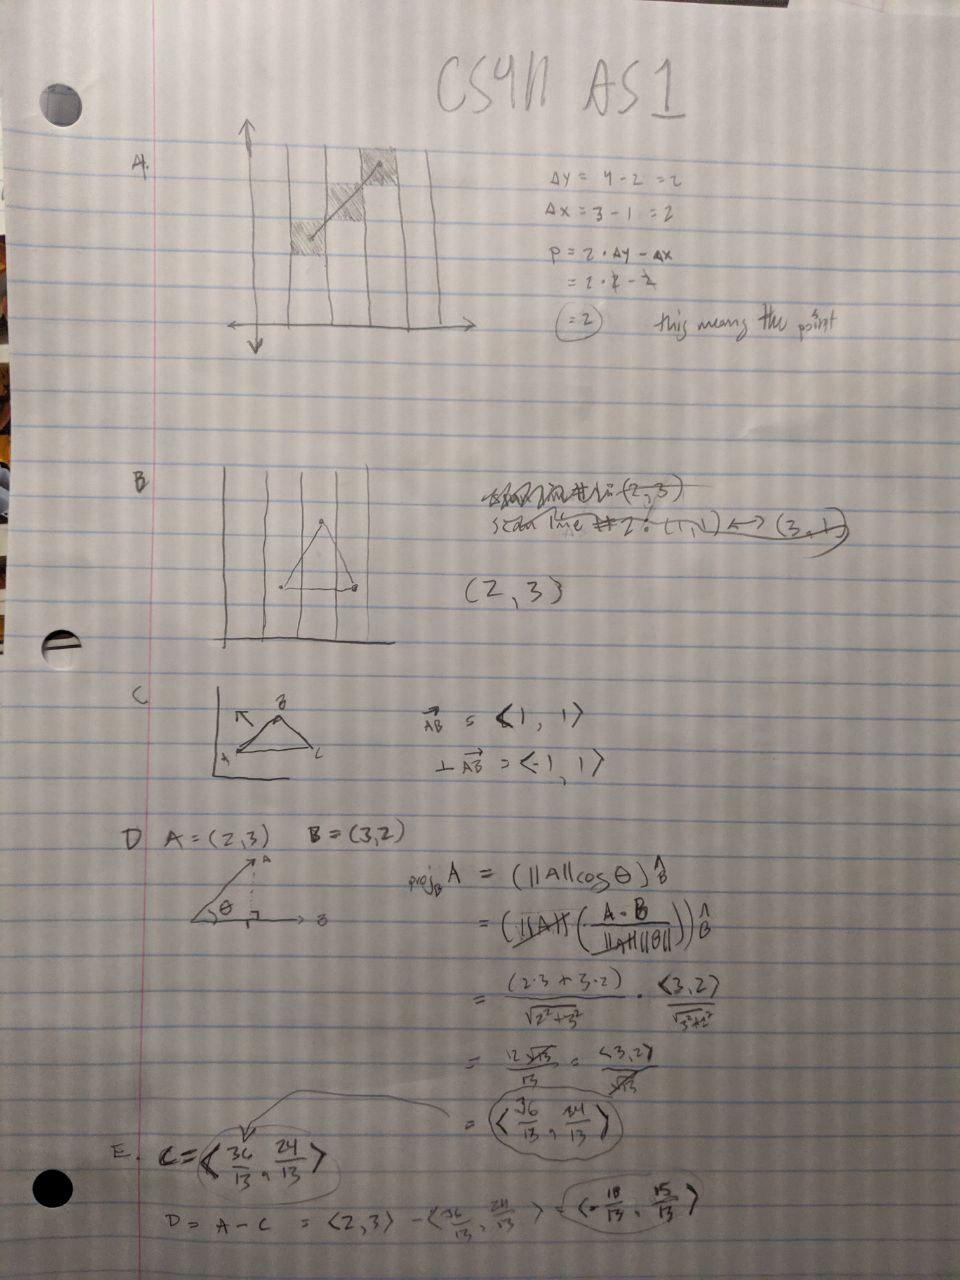 CS411 AS1
A.
Δy = 4 - 2 = 2
Δx = 3 - 1 = 2
P = 2 · Δy - Δx
= 2 · 2 - 2
= 2 this means the point
B
(2,3)
scan line #2: (1,1) ↔ (3,1)
(2,3)
C
B
A C
AB = <1, 1>
⊥ AB = <-1, 1>
D A = (2,3) B = (3,2)
A
θ B
proj_B A = (||A|| cos θ) B̂
= (||A|| (A · B / ||A|| ||B||)) B̂
= (2·3 + 3·2) / √2²+3² · <3,2> / √3²+2²
= 12√13 / 13 · <3,2> / √13
= <36/13, 24/13>
E. C = <36/13, 24/13>
D = A - C = <2,3> - <36/13, 24/13> = <-10/13, 15/13>